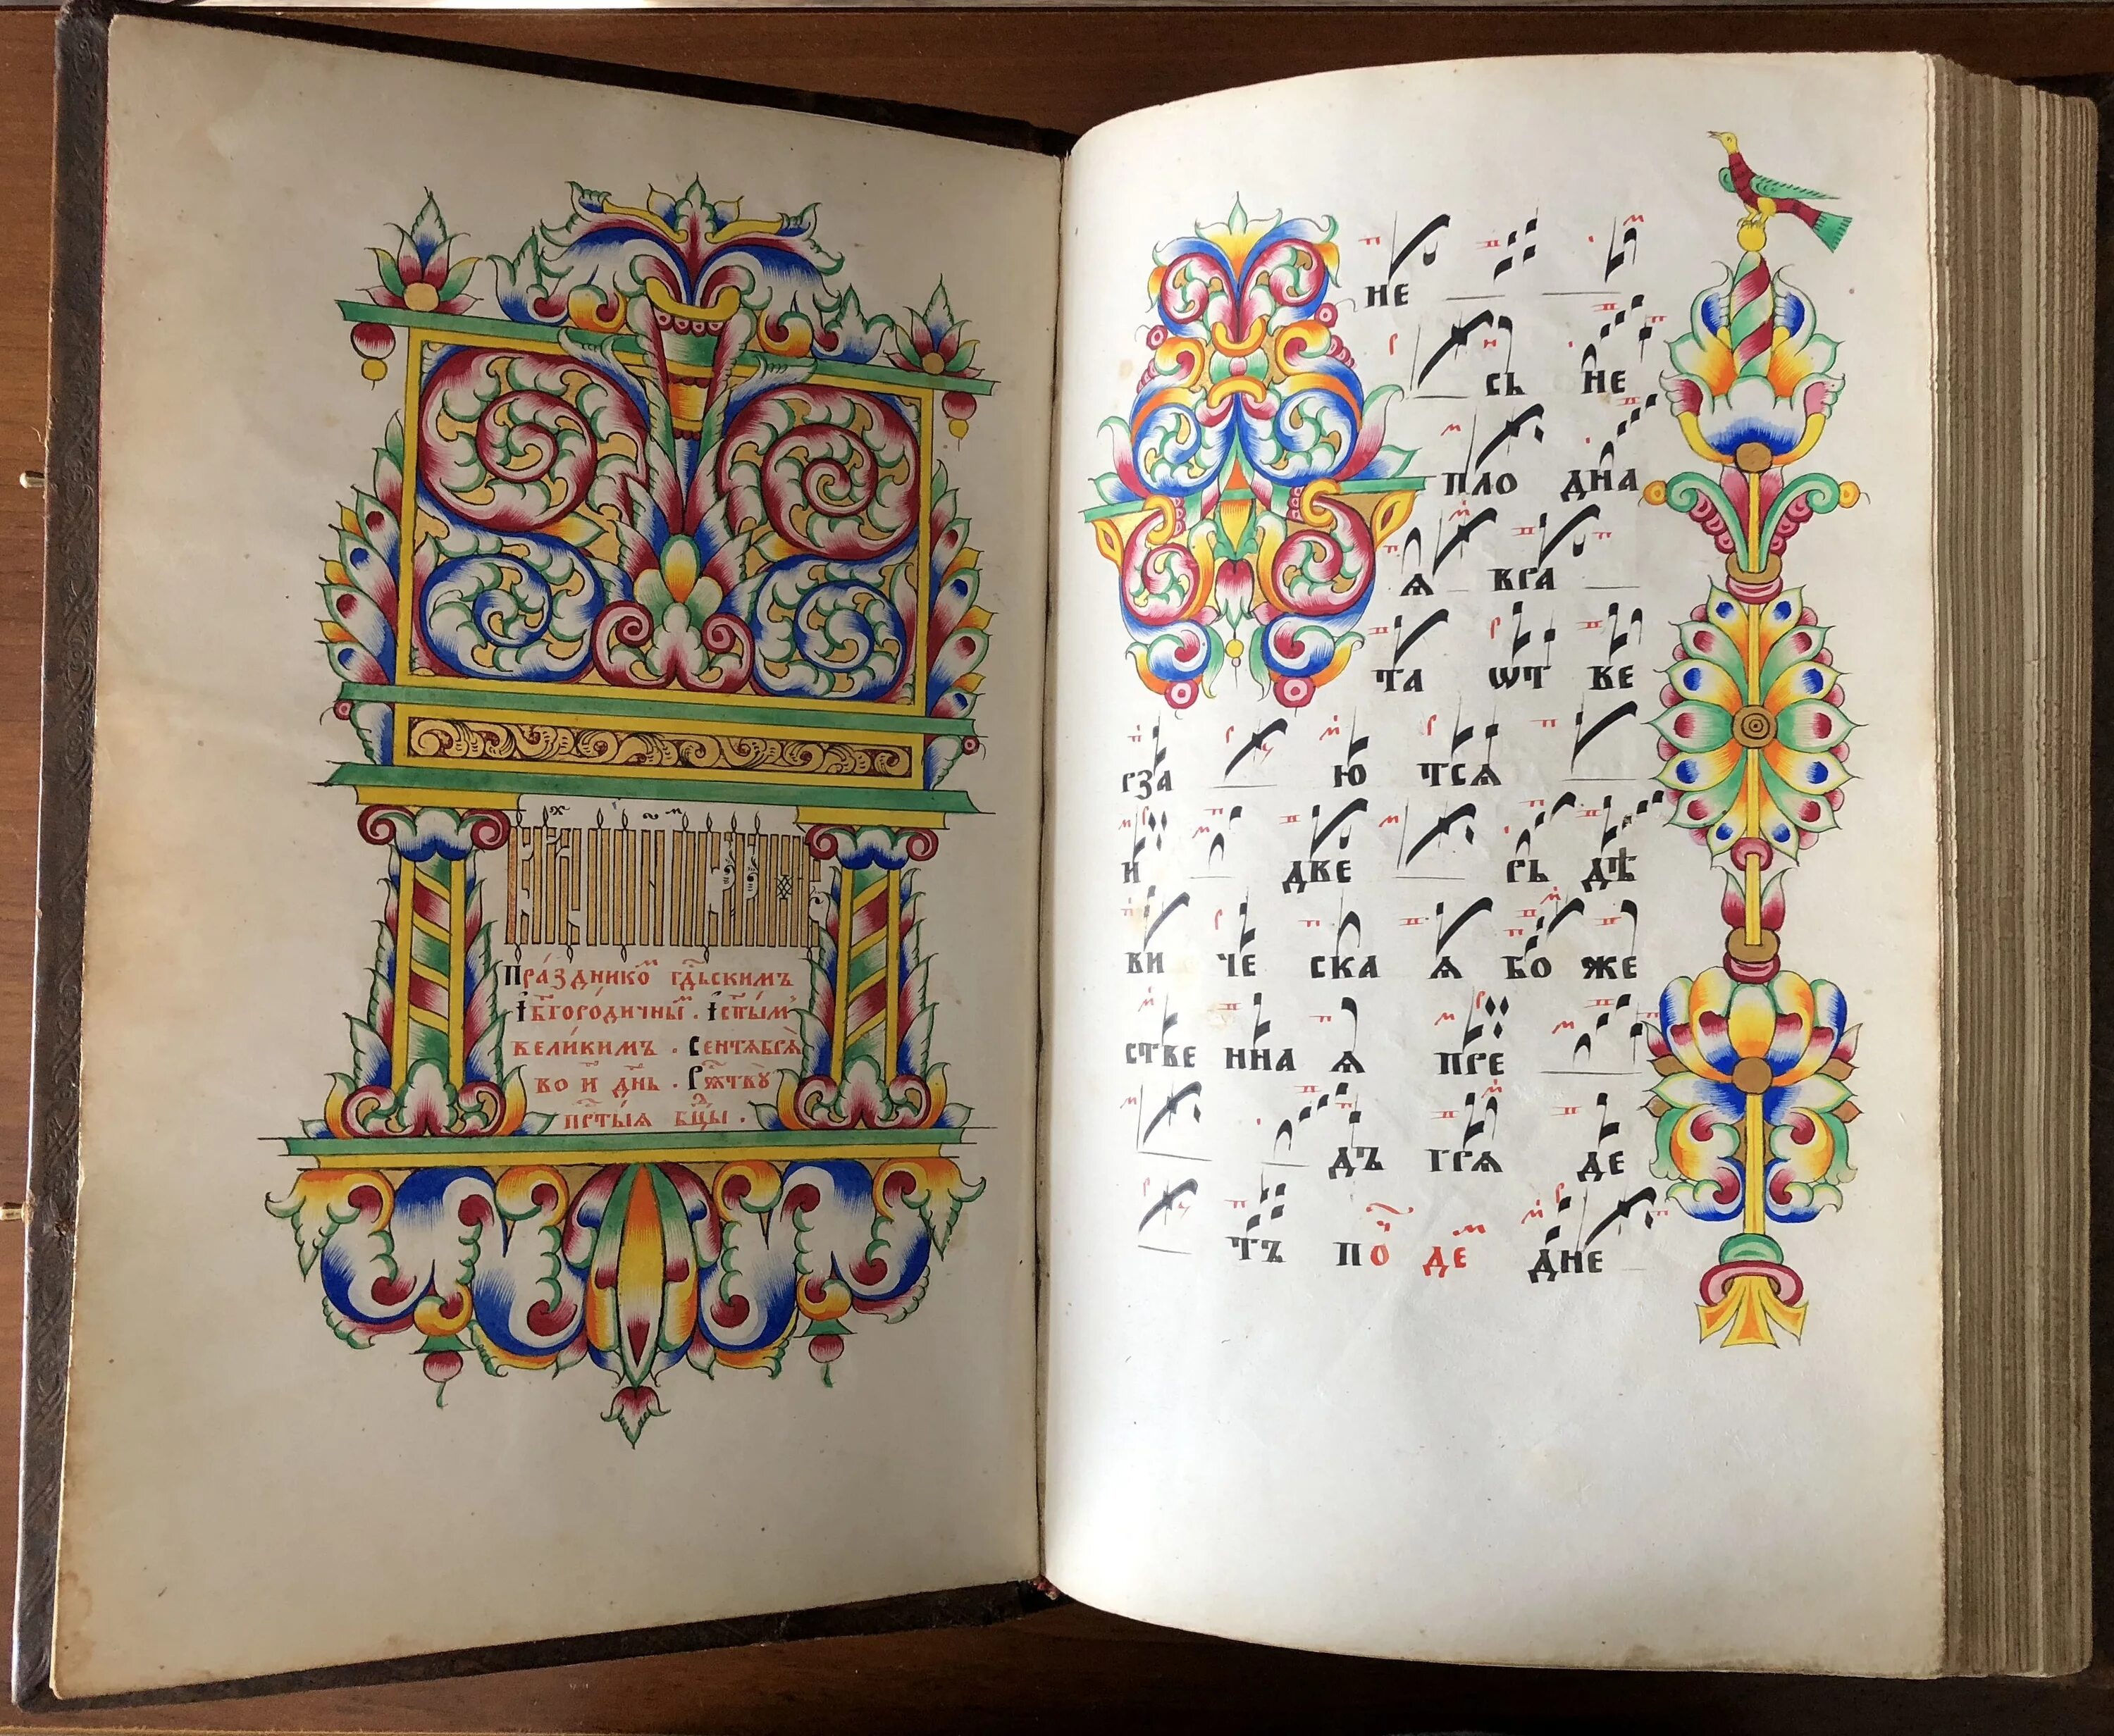 Пра́здникоⷨ гдⷭ҇ьскимъ
і҆бг҃оро́дичныⷨ . і҆ст҃ы́мъ
вели́кимъ . Сентѧбрѧ̀
во и҃ дн҃ь . Рж҃твꙋ̀
прⷭ҇ты́ѧ бц҃ы .
не
сь не
пло дна
ѧ вра
та ѡт ве
рза ю тсѧ
и две рь дѣ
ви че ска ѧ бо же
стве нна ѧ пре
дъ грѧ де
тъ по деⷨ дне